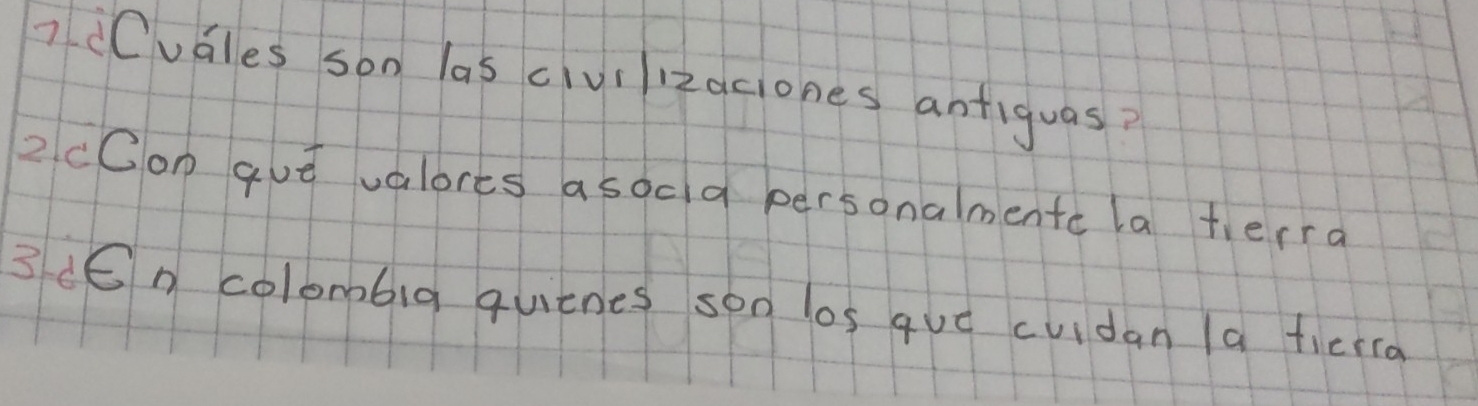 1-¿Cuáles son las civilizaciones antiguas?
2-¿Con qué valores asocia personalmente la tierra
3-¿En colombia quienes son los que cuidan la tierra